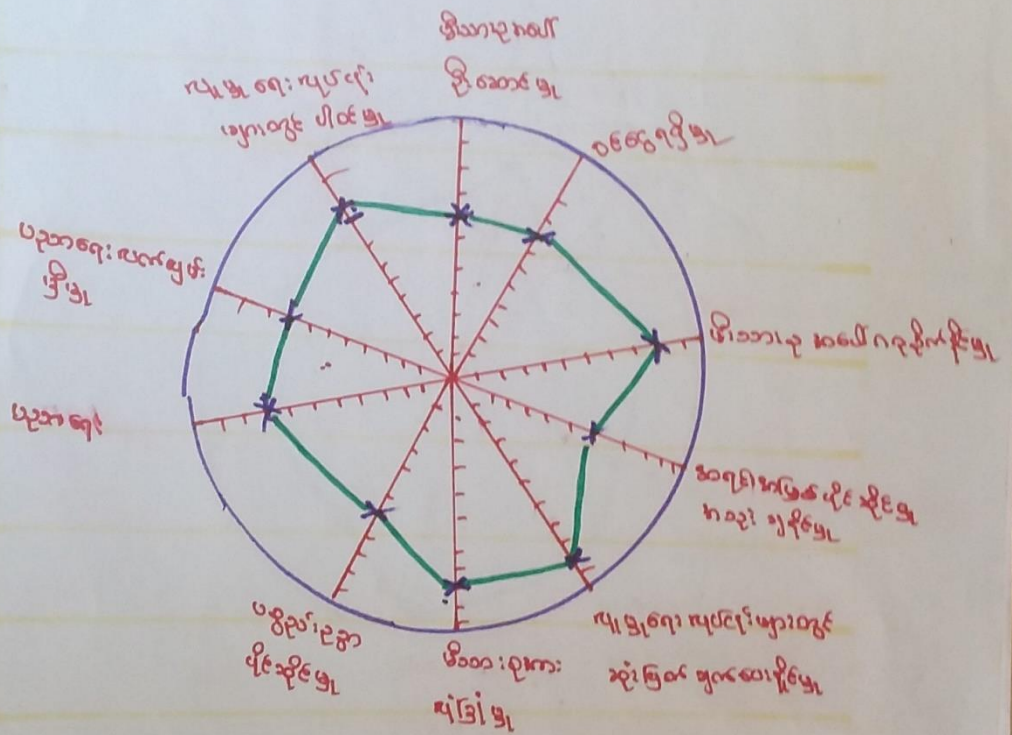 မိသားစုအပေါ်
ဦးဆောင်မှု
ဝင်ငွေရရှိမှု
မိသားစု အပေါ် ဂရုစိုက်နိုင်မှု
အရင်းအမြစ် ပိုင်ဆိုင်မှု
အသုံးချနိုင်မှု
လူမှုရေး လုပ်ငန်းများတွင်
ဆုံးဖြတ်ချက်ပေးနိုင်မှု
မိသားစုအား
လုံခြုံမှု
ပစ္စည်းဥစ္စာ
ပိုင်ဆိုင်မှု
ပညာရေး
ပညာရေး လက်လှမ်း
မှီမှု
လူမှုရေး လုပ်ငန်း
များတွင် ပါဝင်မှု